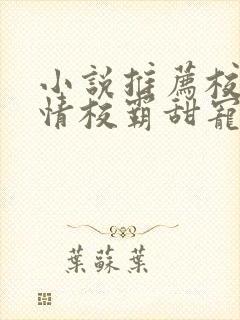 小說推薦校
情校霸甜寵
葉蘇葉